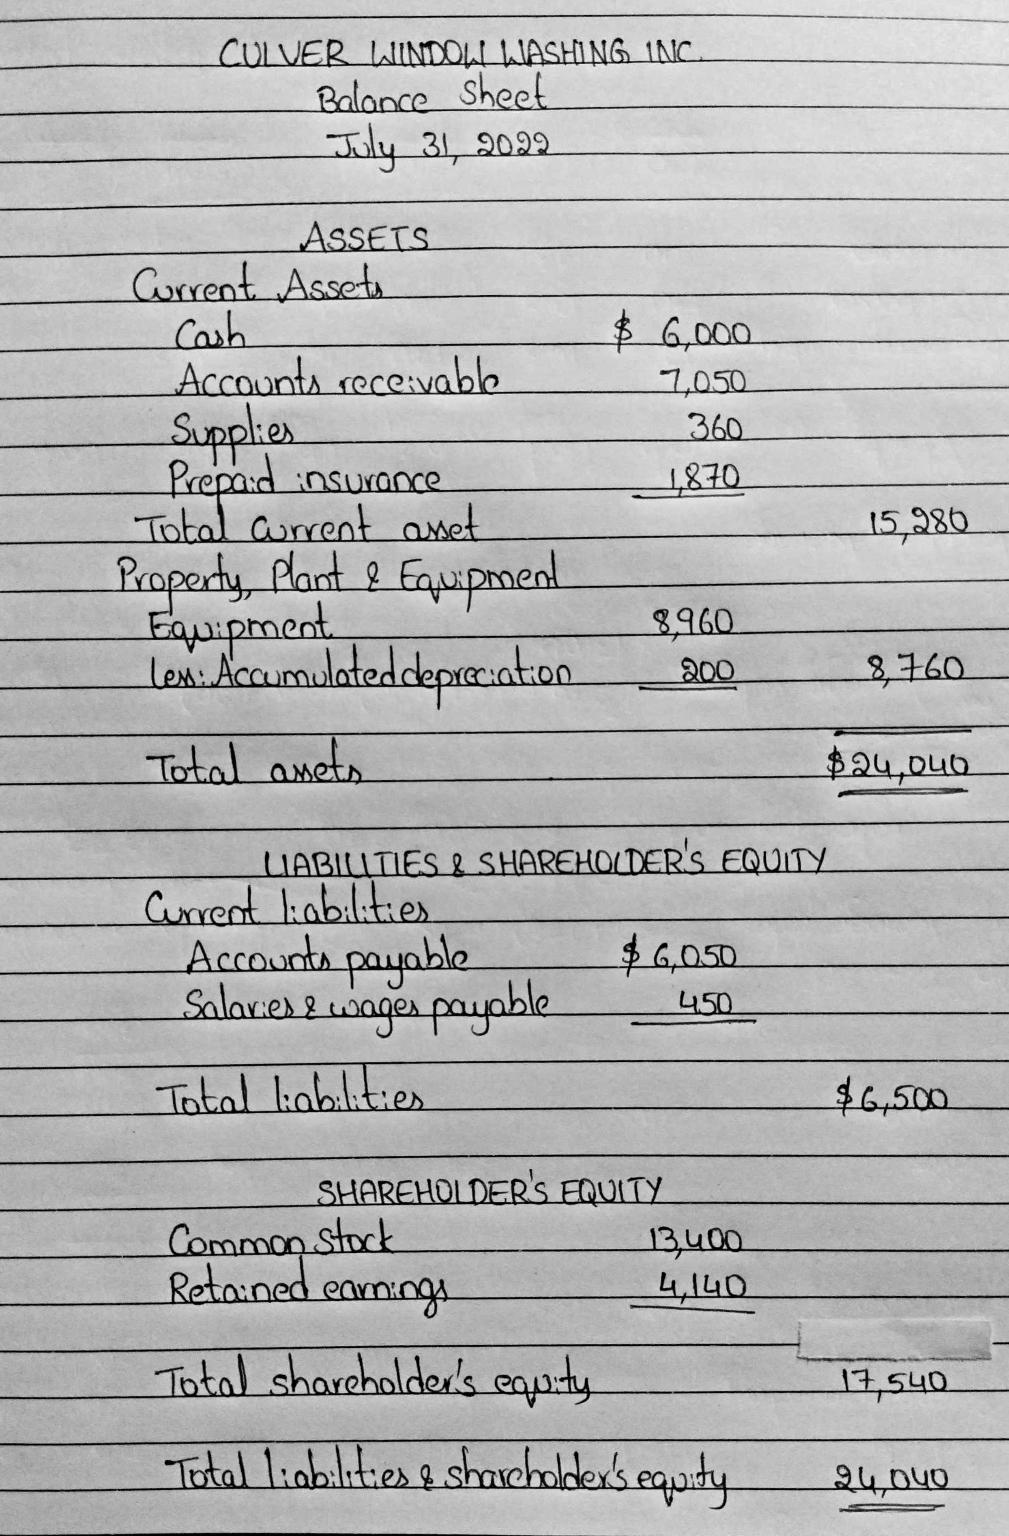 CULVER WINDOW WASHING INC.
Balance Sheet
July 31, 2022
ASSETS
Current Assets
Cash $ 6,000
Accounts receivable 7,050
Supplies 360
Prepaid insurance 1,870
Total current asset 15,280
Property, Plant & Equipment
Equipment 8,960
Less: Accumulated depreciation 200 8,760
Total assets $24,040
LIABILITIES & SHAREHOLDER'S EQUITY
Current liabilities
Accounts payable $ 6,050
Salaries & wages payable 450
Total liabilities $6,500
SHAREHOLDER'S EQUITY
Common Stock 13,400
Retained earnings 4,140
Total shareholder's equity 17,540
Total liabilities & shareholder's equity 24,040